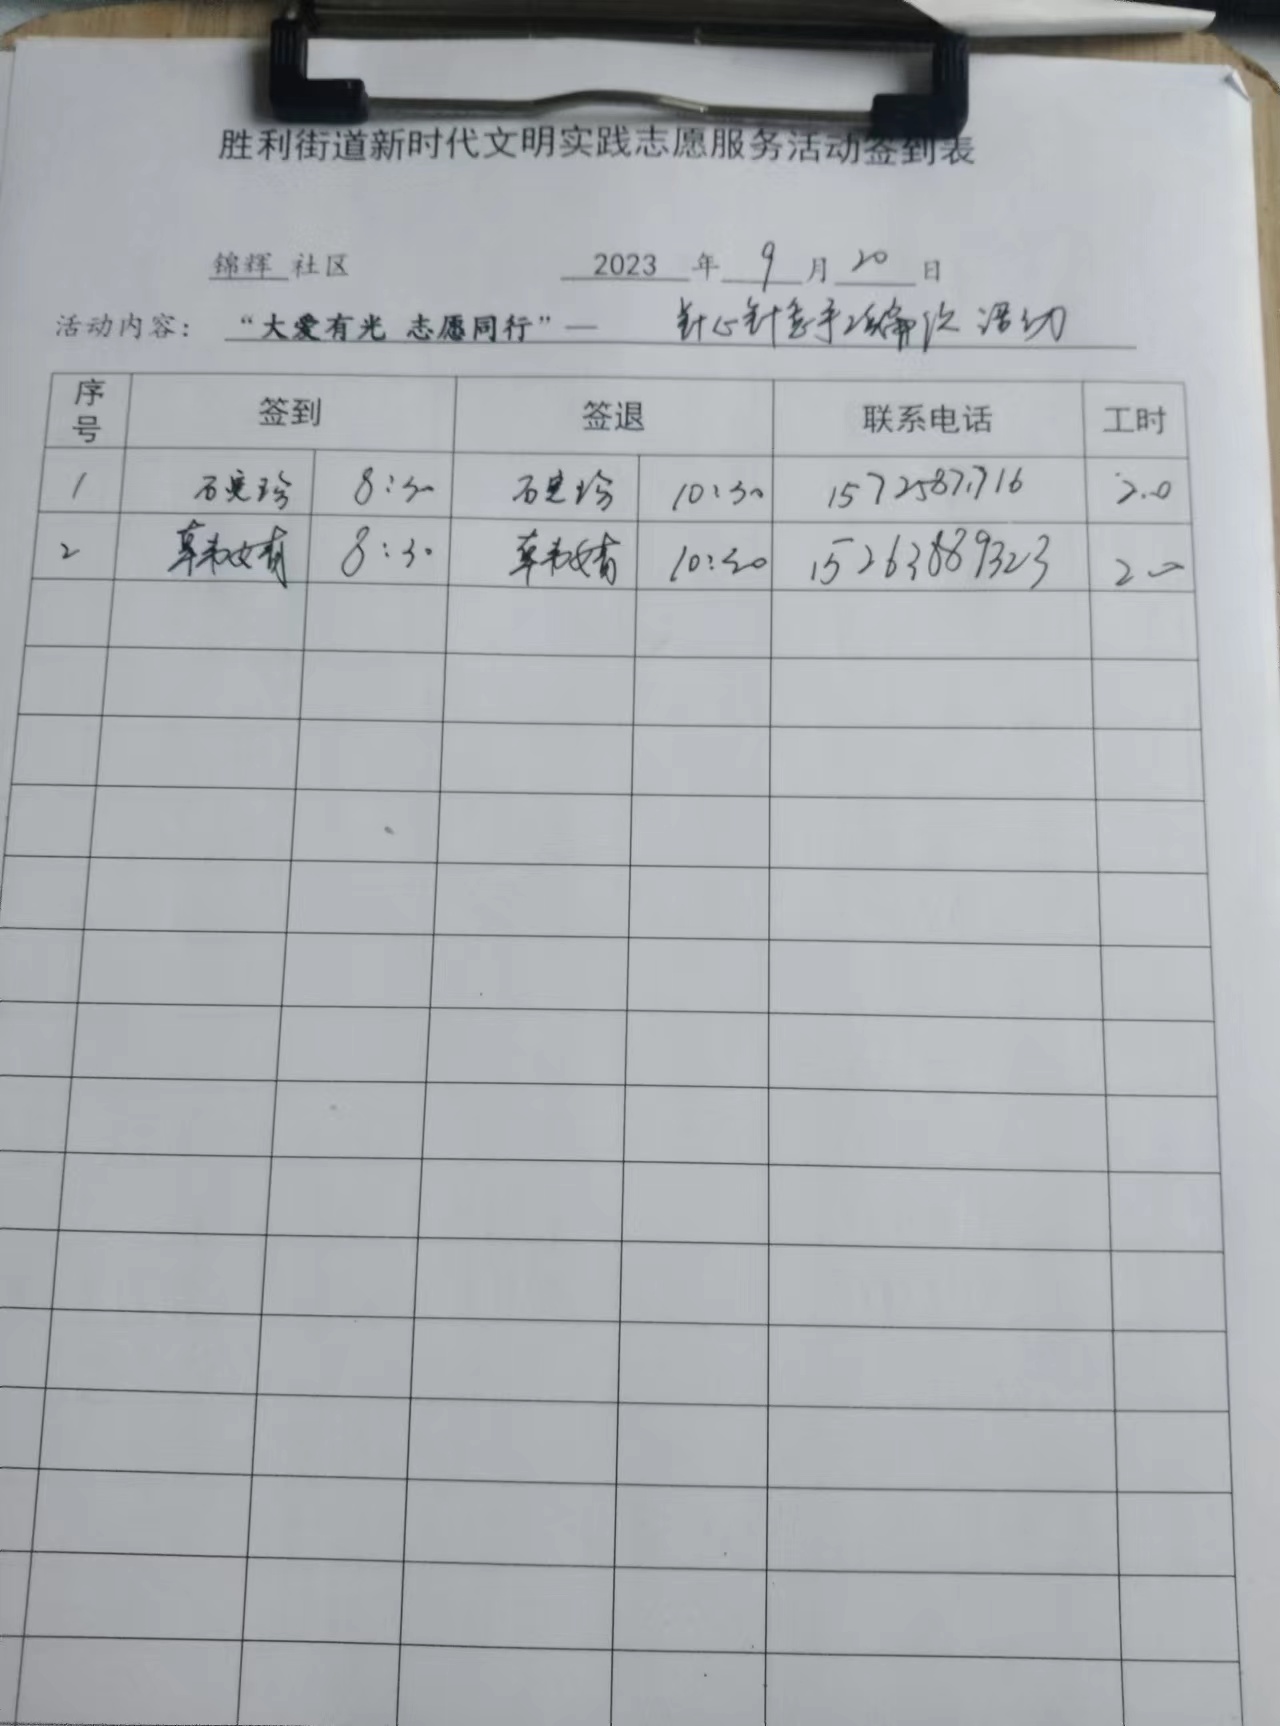 胜利街道新时代文明实践志愿服务活动签到表
锦辉 社区 2023 年 9 月 20 日
活动内容： “大爱有光 志愿同行”— 活动
序号 签到 签退 联系电话 工时
1 8:30 10:30 15725877716 2.0
2 韩婧 8:30 韩婧 10:30 15263889323 2.0